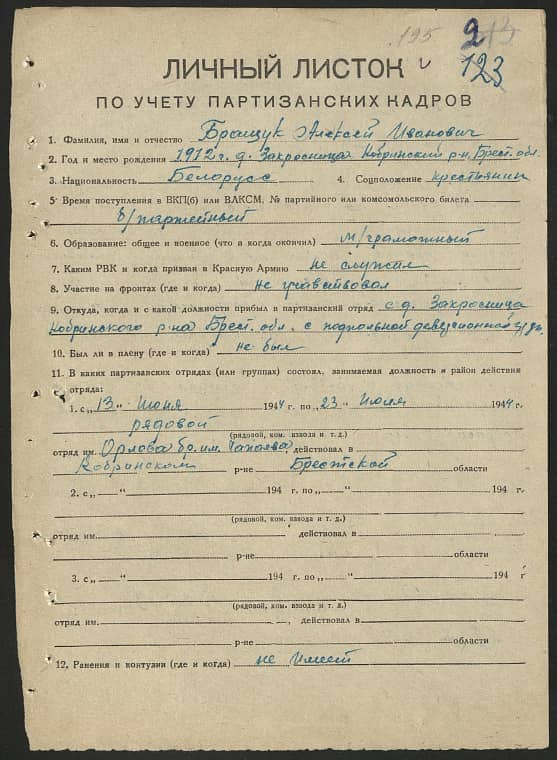 195
123
ЛИЧНЫЙ ЛИСТОК
ПО УЧЕТУ ПАРТИЗАНСКИХ КАДРОВ
1. Фамилия, имя и отчество Бращук Алексей Иванович
2. Год и место рождения 1912 г. д. Закросница Кобринский р-н, Брест. обл.
3. Национальность Белорусс 4. Соцположение крестьянин
5. Время поступления в ВКП(б) или ВЛКСМ, № партийного или комсомольского билета
б/партейный
6. Образование: общее и военное (что и когда окончил) м/грамотный
7. Каким РВК и когда призван в Красную Армию не служил
8. Участие на фронтах (где и когда) не участвовал
9. Откуда, когда и с какой должности прибыл в партизанский отряд с д. Закросница
Кобринского р-на Брест. обл. с подпольной
10. Был ли в плену (где и когда) не был
11. В каких партизанских отрядах (или группах) состоял, занимаемая должность и район действия
отряда:
1. с „13“ июня 1944 г. по „23“ июля 1944 г.
рядовой
(рядовой, ком. взвода и т. д.)
отряд им. Орлова бр. им. Чапаева, действовал в
Кобринском р-не Брестской области
2. с „ “ 194 г. по „ “ 194 г.
(рядовой, ком. взвода и т. д.)
отряд им. , действовал в
р-не области
3. с „ “ 194 г. по „ “ 194 г
(рядовой, ком. взвода и т. д.)
отряд им. , действовал в
р-не области
12. Ранения и контузии (где и когда) не имеет